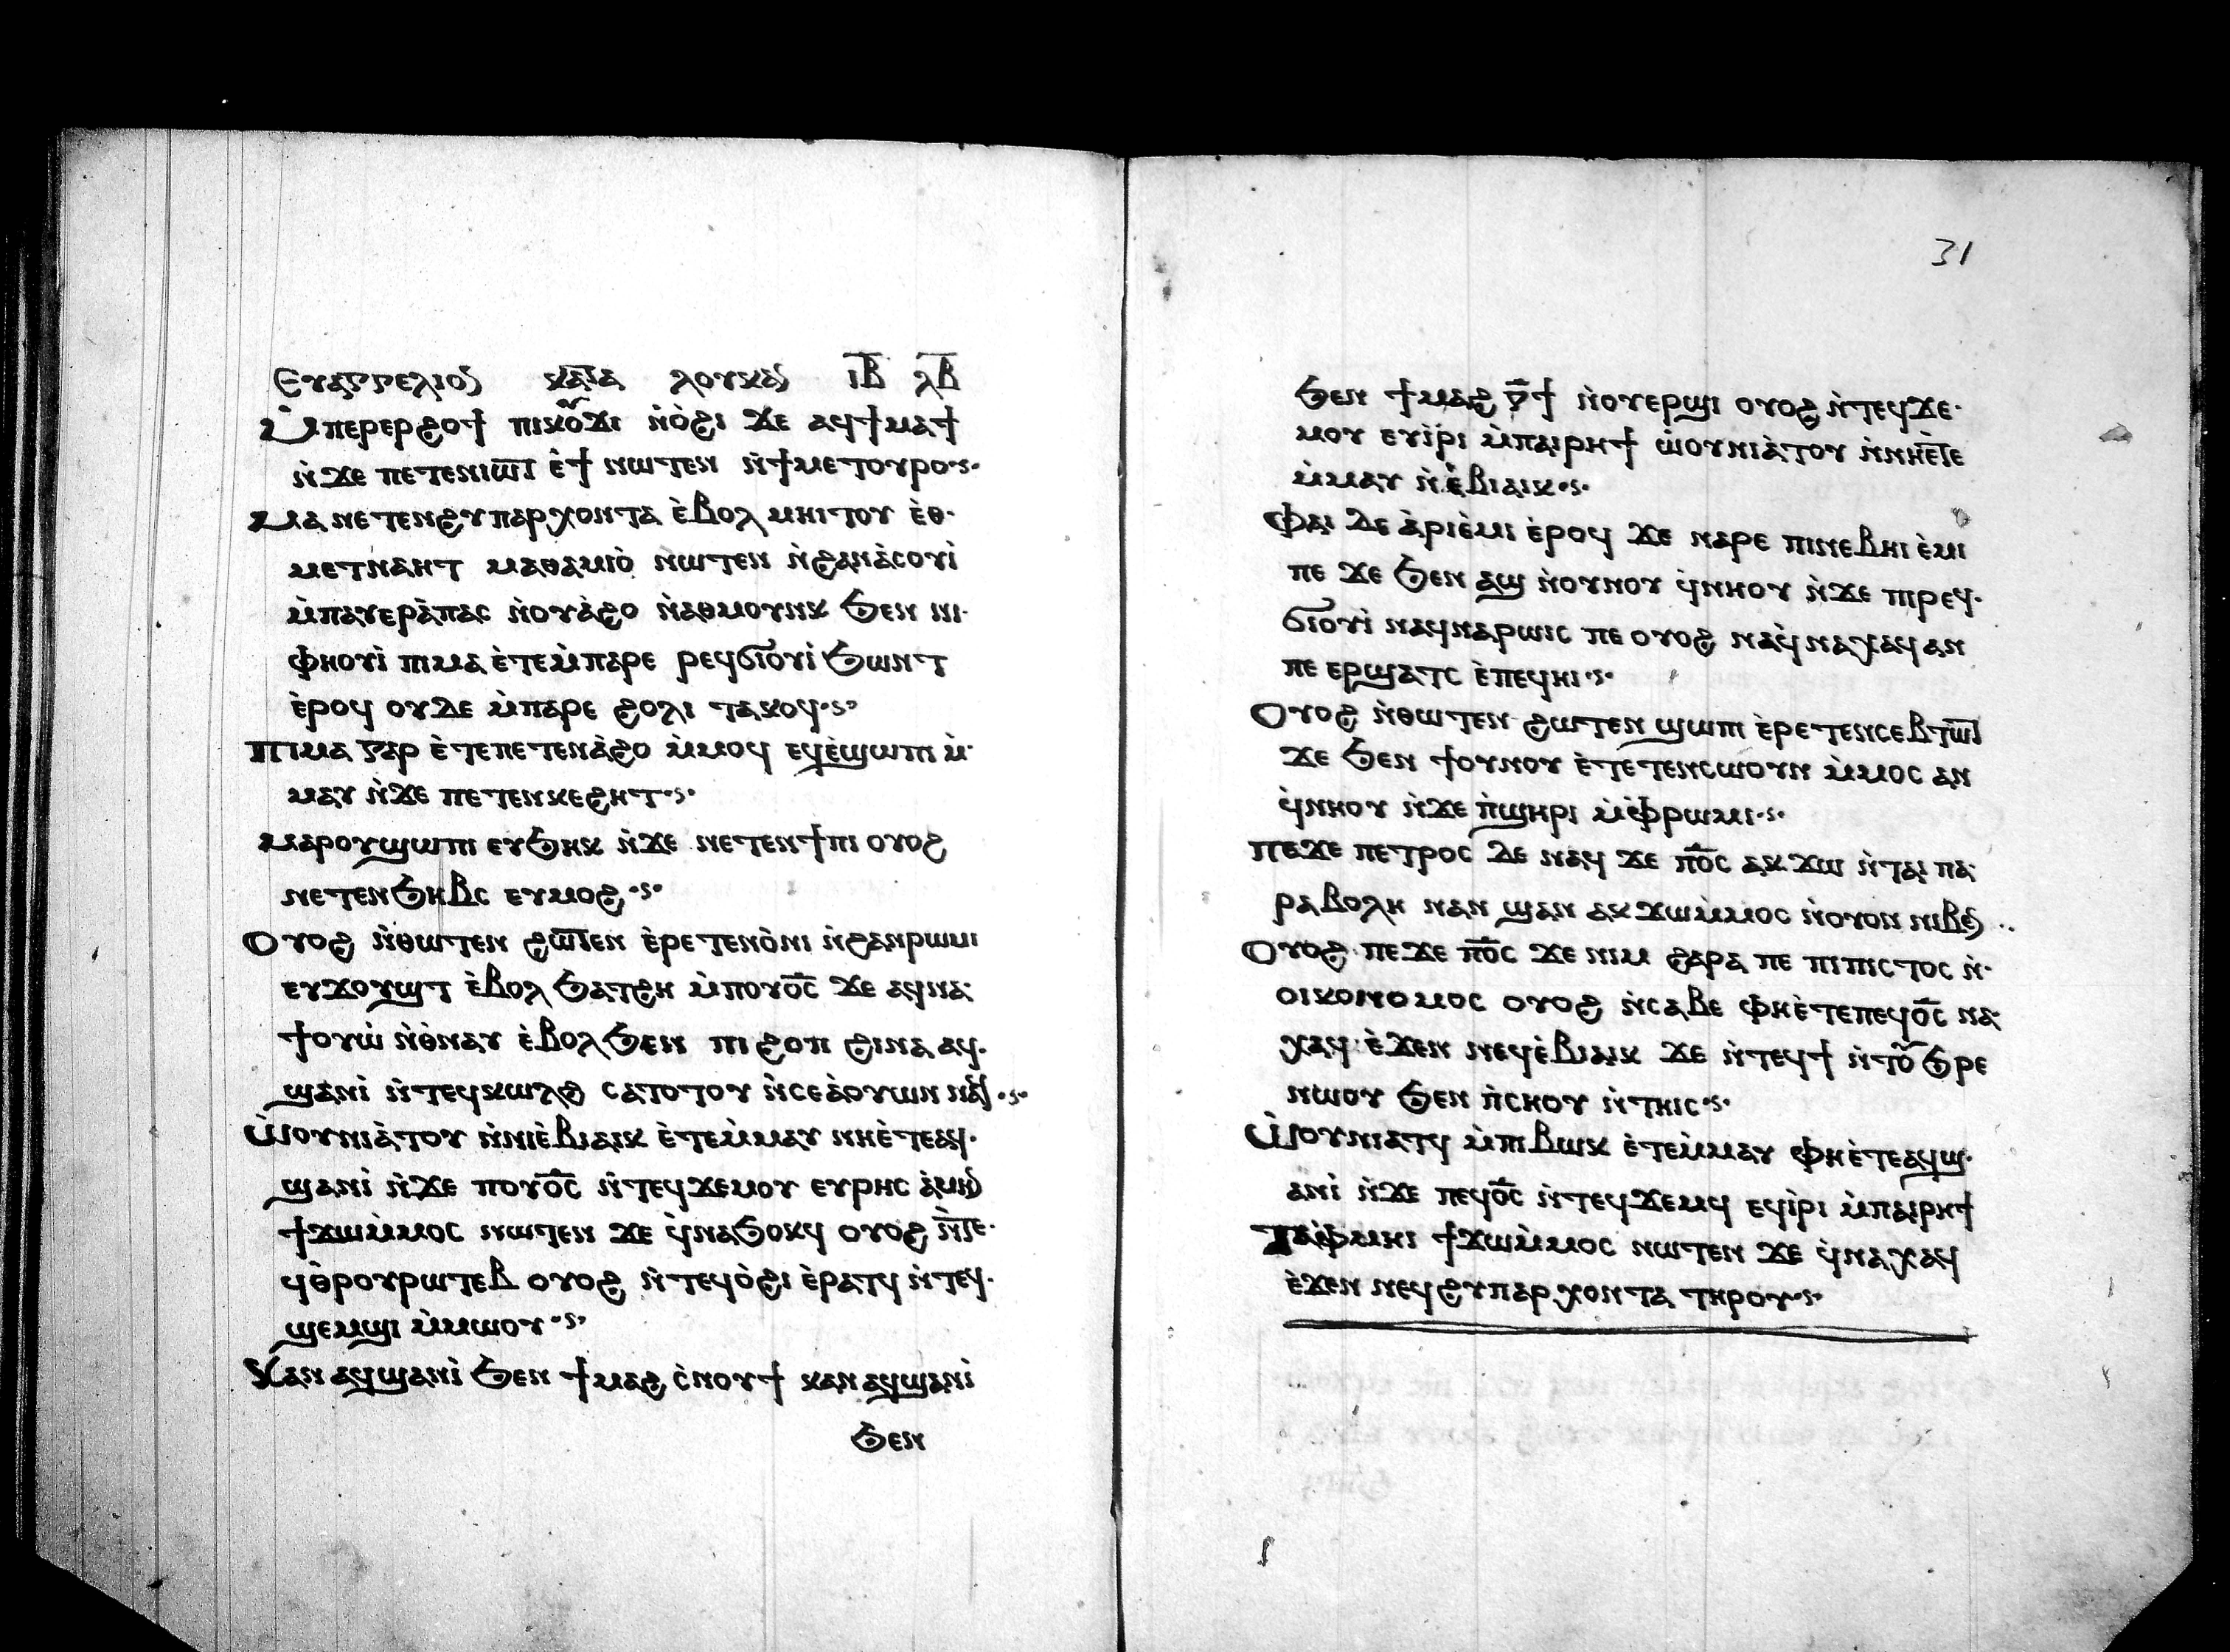 Ⲉⲩⲁⲅⲅⲉⲗⲓⲟⲛ ⲕⲁⲧⲁ ⲗⲟⲩⲕⲁⲛ ⲓ̅ⲃ̅ ⲗ̅ⲃ̅
Ⲙ̀ⲡⲉⲣⲉⲣϩⲟϯ ⲡⲓⲕⲟϫⲓ ⲛ̀ⲟ̀ϩⲓ ϫⲉ ⲁϥϯⲙⲁϯ
ⲛ̀ϫⲉ ⲡⲉⲧⲉⲛⲓⲱⲧ ⲉ̀ϯ ⲛⲱⲧⲉⲛ ⲛ̀ϯⲙⲉⲧⲟⲩⲣⲟ·ⲥ·
Ⲙⲁ ⲛⲉⲧⲉⲛϩⲩⲡⲁⲣⲭⲟⲛⲧⲁ ⲉ̀ⲃⲟⲗ ⲙⲏⲓⲧⲟⲩ ⲉ̀ⲑ·
ⲙⲉⲧⲛⲁⲏⲧ ⲙⲁⲑⲁⲙⲓⲟ̀ ⲛⲱⲧⲉⲛ ⲛ̀ϩⲁⲛⲁ̀ⲥⲟⲩⲓ̀
ⲙ̀ⲡⲁⲩⲉⲣⲁ̀ⲡⲁⲥ ⲛ̀ⲟⲩⲁ̀ϩⲟ ⲛ̀ⲁⲑⲙⲟⲩⲛⲕ ϧⲉⲛ ⲛⲓ·
ⲫⲏⲟⲩⲓ̀ ⲡⲓⲙⲁ ⲉ̀ⲧⲉⲙ̀ⲡⲁⲣⲉ ⲣⲉϥϭⲓⲟⲩⲓ̀ ϧⲱⲛⲧ
ⲉ̀ⲣⲟϥ ⲟⲩⲇⲉ ⲙ̀ⲡⲁⲣⲉ ϩⲟⲗⲓ ⲧⲁⲕⲟϥ·ⲥ·
Ⲡⲓⲙⲁ ⲅⲁⲣ ⲉ̀ⲧⲉⲡⲉⲧⲉⲛⲁ̀ϩⲟ ⲙ̀ⲙⲟϥ ⲉϥⲉ̀ϣⲱⲡⲓ ⲙ̀·
ⲙⲁⲩ ⲛ̀ϫⲉ ⲡⲉⲧⲉⲛⲕⲉϩⲏⲧ·ⲥ·
Ⲙⲁⲣⲟⲩϣⲱⲡⲓ ⲉⲩϧⲏⲕ ⲛ̀ϫⲉ ⲛⲉⲧⲉⲛϯⲡⲓ ⲟⲩⲟϩ
ⲛⲉⲧⲉⲛϧⲏⲃⲥ ⲉⲩⲙⲟϩ·ⲥ·
Ⲟⲩⲟϩ ⲛ̀ⲑⲱⲧⲉⲛ ϩⲱⲧⲉⲛ ⲉ̀ⲣⲉⲧⲉⲛⲟ̀ⲛⲓ ⲛ̀ϩⲁⲛⲣⲱⲙⲓ
ⲉⲩϫⲟⲩϣⲧ ⲉ̀ⲃⲟⲗ ϧⲁⲧϩⲏ ⲙ̀ⲡⲟⲩⲟ̅ⲥ̅ ϫⲉ ⲁϥⲛⲁ·
ϯⲟⲩⲱ̀ ⲛ̀ⲑ̀ⲛⲁⲩ ⲉ̀ⲃⲟⲗ ϧⲉⲛ ⲡⲓ ϩⲟⲡ ϩⲓⲛⲁ ⲁϥ·
ϣⲁⲛⲓ̀ ⲛ̀ⲧⲉϥⲕⲱⲗϩ ⲥⲁⲧⲟⲧⲟⲩ ⲛ̀ⲥⲉⲁ̀ⲟⲩⲱⲛ ⲛⲁϥ·ⲥ·
Ⲱ̀ⲟⲩⲛⲓⲁ̀ⲧⲟⲩ ⲛ̀ⲛⲓⲉ̀ⲃⲓⲁⲓⲕ ⲉ̀ⲧⲉⲙ̀ⲙⲁⲩ ⲛⲏⲉ̀ⲧⲉⲁϥ·
ϣⲁⲛⲓ̀ ⲛ̀ϫⲉ ⲡⲟⲩⲟ̅ⲥ̅ ⲛ̀ⲧⲉϥϫⲉⲙⲟⲩ ⲉⲩⲣⲏⲥ ⲁ̀ⲙⲏⲛ
ϯϫⲱⲙ̀ⲙⲟⲥ ⲛⲱⲧⲉⲛ ϫⲉ ϥ̀ⲛⲁϧⲟⲕϥ ⲟⲩⲟϩ ⲛ̀ⲧⲉ·
ϥⲑ̀ⲣⲟⲩⲣⲱⲧⲉⲃ ⲟⲩⲟϩ ⲛ̀ⲧⲉϥⲟ̀ϩⲓ ⲉ̀ⲣⲁⲧϥ ⲛ̀ⲧⲉϥ·
ϣⲉⲙϣⲓ ⲙ̀ⲙⲱⲟⲩ·ⲥ·
Ⲕⲁⲛ ⲁϥϣⲁⲛⲓ̀ ϧⲉⲛ ϯⲙⲁϩ ⲥ̀ⲛⲟⲩϯ ⲕⲁⲛ ⲁϥϣⲁⲛⲓ̀
ϧⲉⲛ
31
ϧⲉⲛ ϯⲙⲁϩ ⲅ̅ϯ ⲛ̀ⲟⲩⲉⲣϣⲓ ⲟⲩⲟϩ ⲛ̀ⲧⲉϥϫⲉ·
ⲙⲟⲩ ⲉⲩⲓ̀ⲣⲓ ⲙ̀ⲡⲁⲓⲣⲏϯ ⲱ̀ⲟⲩⲛⲓⲁ̀ⲧⲟⲩ ⲛ̀ⲛⲏⲉ̀ⲧⲉ
ⲙ̀ⲙⲁⲩ ⲛ̀ⲉ̀ⲃⲓⲁⲓⲕ·ⲥ·
Ⲫⲁⲓ ⲇⲉ ⲁ̀ⲣⲓⲉ̀ⲙⲓ ⲉ̀ⲣⲟϥ ϫⲉ ⲛⲁⲣⲉ ⲡⲓⲛⲉⲃⲏⲓ ⲉ̀ⲙⲓ
ⲡⲉ ϫⲉ ϧⲉⲛ ⲁϣ ⲛ̀ⲟⲩⲛⲟⲩ ϥ̀ⲛⲏⲟⲩ ⲛ̀ϫⲉ ⲡⲓⲣⲉϥ·
ϭⲓⲟⲩⲓ̀ ⲛⲁϥⲛⲁⲣⲱⲓⲥ ⲡⲉ ⲟⲩⲟϩ ⲛⲁϥⲛⲁⲭⲁϥ ⲁⲛ
ⲡⲉ ⲉⲣϣⲁⲧⲥ ⲉ̀ⲡⲉϥⲏⲓ·ⲥ·
Ⲟⲩⲟϩ ⲛ̀ⲑⲱⲧⲉⲛ ϩⲱⲧⲉⲛ ϣⲱⲡⲓ ⲉ̀ⲣⲉⲧⲉⲛⲥⲉⲃⲧⲱⲧ
ϫⲉ ϧⲉⲛ ϯⲟⲩⲛⲟⲩ ⲉ̀ⲧⲉⲧⲉⲛⲥⲱⲟⲩⲛ ⲙ̀ⲙⲟⲥ ⲁⲛ
ϥ̀ⲛⲏⲟⲩ ⲛ̀ϫⲉ ⲡ̀ϣⲏⲣⲓ ⲙ̀ⲫⲣⲱⲙⲓ·ⲥ·
Ⲡⲉϫⲉ ⲡⲉⲧⲣⲟⲥ ⲇⲉ ⲛⲁϥ ϫⲉ ⲡⲟ̅ⲥ ⲁⲕ ϫⲱ ⲛ̀ⲧⲁⲓ ⲡⲁ·
ⲣⲁⲃⲟⲗⲏ ⲛⲁⲛ ϣⲁⲛ ⲁⲕ ϫⲱⲙ̀ⲙⲟⲥ ⲛ̀ⲟⲩⲟⲛ ⲛⲓⲃⲉⲛ ··
Ⲟⲩⲟϩ ⲡⲉϫⲉ ⲡⲟ̅ⲥ ϫⲉ ⲛⲓⲙ ϩⲁⲣⲁ ⲡⲉ ⲡⲓⲡⲓⲥⲧⲟⲥ ⲛ̀·
ⲟⲓⲕⲟⲛⲟⲙⲟⲥ ⲟⲩⲟϩ ⲛ̀ⲥⲁⲃⲉ ⲫⲏⲉ̀ⲧⲉⲡⲉϥⲟ̅ⲥ ⲛⲁ·
ⲭⲁϥ ⲉ̀ϫⲉⲛ ⲛⲉϥⲉ̀ⲃⲓⲁⲓⲕ ϫⲉ ⲛ̀ⲧⲉϥϯ ⲛ̀ⲧⲟ ϧⲣⲉ
ⲛⲱⲟⲩ ϧⲉⲛ ⲡ̀ⲥⲏⲟⲩ ⲛ̀ⲧⲏⲓⲥ·ⲥ·
Ⲱ̀ⲟⲩⲛⲓⲁⲧϥ ⲙ̀ⲡⲓⲃⲱⲕ ⲉ̀ⲧⲉⲙ̀ⲙⲁⲩ ⲫⲏⲉ̀ⲧⲉⲁϥϣ·
ⲁⲛⲓ̀ ⲛ̀ϫⲉ ⲡⲉϥⲟ̅ⲥ ⲛ̀ⲧⲉϥϫⲉⲙϥ ⲉϥⲓ̀ⲣⲓ ⲙ̀ⲡⲁⲓⲣⲏϯ
Ⲧⲁⲫ̀ⲙⲏⲓ ϯϫⲱⲙ̀ⲙⲟⲥ ⲛⲱⲧⲉⲛ ϫⲉ ϥ̀ⲛⲁⲭⲁϥ
ⲉ̀ϫⲉⲛ ⲛⲉϥϩⲩⲡⲁⲣⲭⲟⲛⲧⲁ ⲧⲏⲣⲟⲩ·ⲥ·